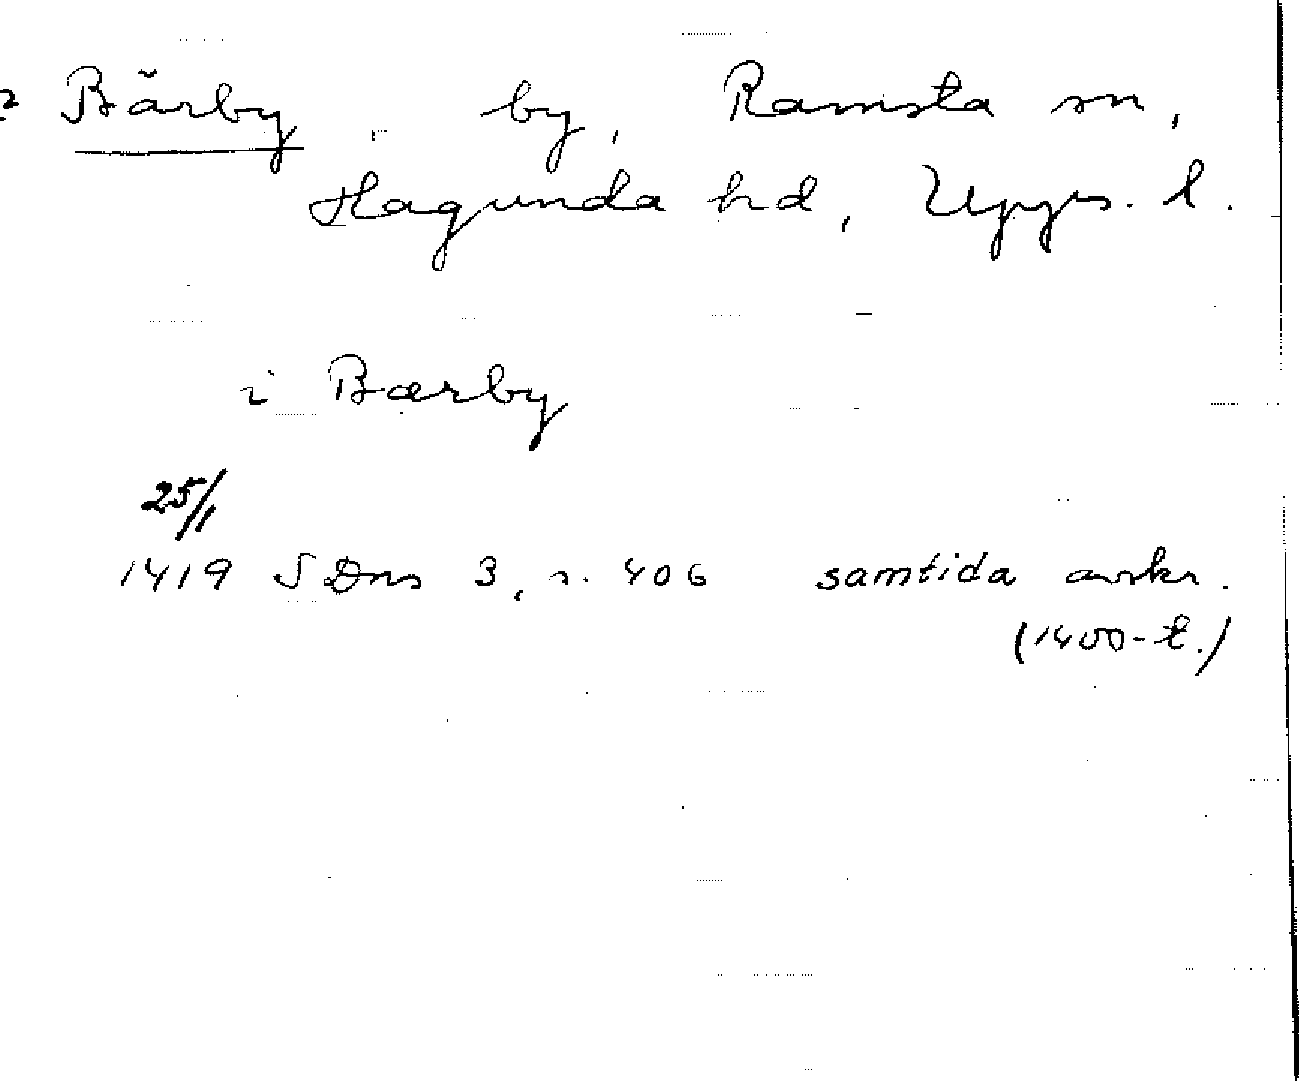 Bärby by, Ramsta sn,
Hagunda hd, Upps. l.
i Bærby
25/1
1419 SDns 3, s. 406 samtida avskr.
(1400-t.)